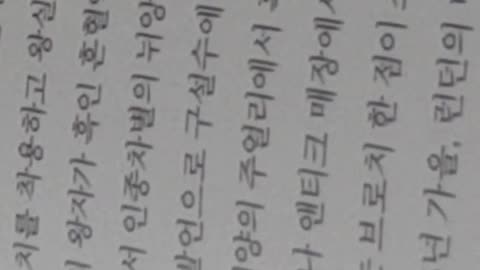 치를 착용하고
왕자가 흑인 혼혈
서 인종차별의 뉘앙
발언으로 구설수에
양의 주얼리에서
나 앤티크 매장에서
브로치 한 점이
년 가을, 런던의